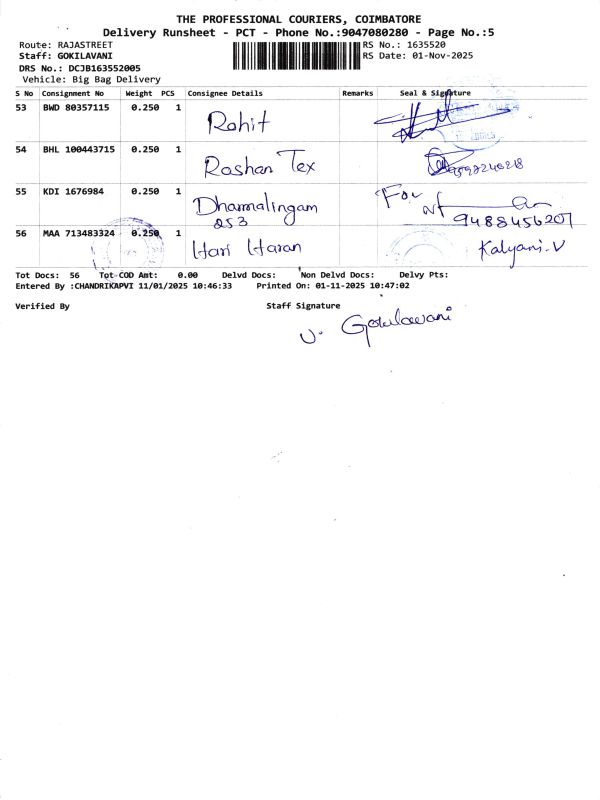 THE PROFESSIONAL COURIERS, COIMBATORE
Delivery Runsheet - PCT - Phone No.:9047080280 - Page No.:5
Route: RAJASTREET RS No.: 1635520
Staff: GOKILAVANI RS Date: 01-Nov-2025
DRS No.: DCJB163552005
Vehicle: Big Bag Delivery
S No Consignment No Weight PCS Consignee Details Remarks Seal & Signature
53 BWD 80357115 0.250 1 Rohit
54 BHL 100443715 0.250 1 Roshan Tex
55 KDI 1676984 0.250 1 Dharmalingam For
253 9488456207
56 MAA 713483324 0.250 1 Hari Haran Kalyani.V
Tot Docs: 56 Tot COD Amt: 0.00 Delvd Docs: Non Delvd Docs: Delvy Pts:
Entered By :CHANDRIKAPVI 11/01/2025 10:46:33 Printed On: 01-11-2025 10:47:02
Verified By Staff Signature
V. Gokilavani